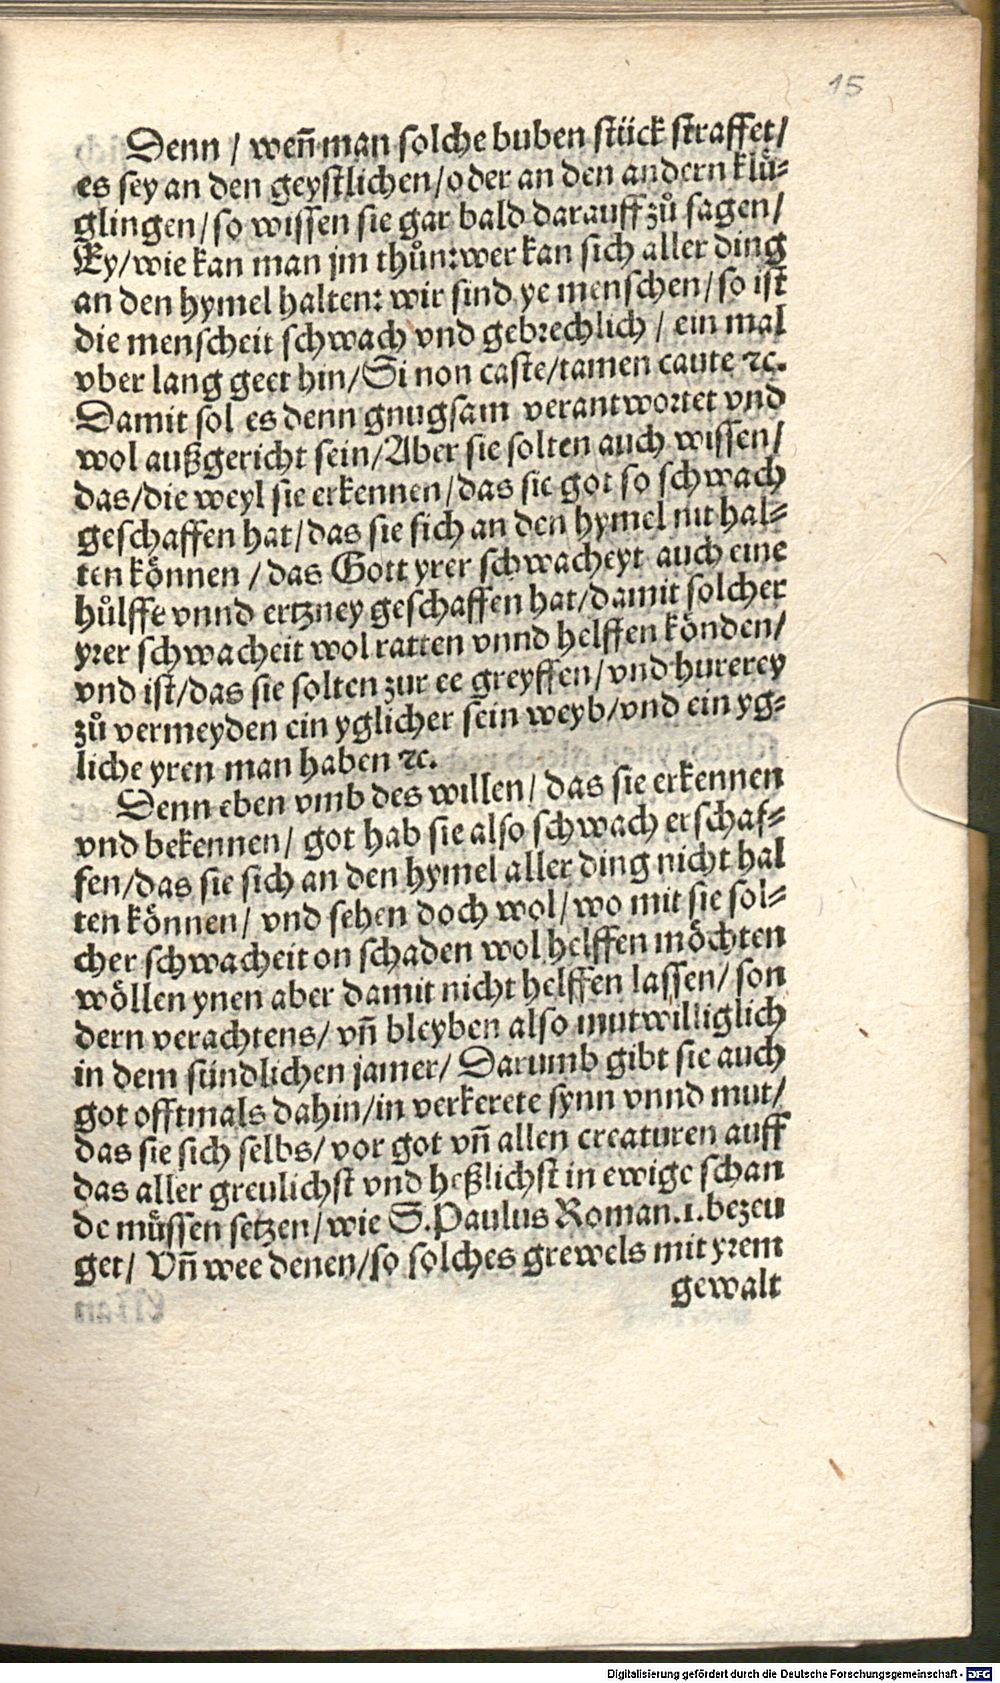 15
Denn / weñ man solche buben stück straffet/
es sey an den geystlichen/oder an den andern klů⸗
glingen/so wissen sie gar bald darauff zů sagen/
Ey/wie kan man jm thůn:wer kan sich aller ding
an den hymel halten: wir sind ye menschen/so ist
die menscheit schwach vnd gebrechlich / ein mal
vber lang geet hin/Si non caste/tamen caute ꝛc.
Damit sol es denn gnugsam verantwortet vnd
wol außgericht sein/Aber sie solten auch wissen/
das/die weyl sie erkennen/das sie got so schwach
geschaffen hat/das sie sich an den hymel nit hal⸗
ten können /das Gott yrer schwacheyt auch eine
hůlffe vnnd ertzney geschaffen hat/damit solcher
yrer schwacheit wol ratten vnnd helffen könden/
vnd ist/das sie solten zur ee greyffen/vnd hurerey
zů vermeyden ein yglicher sein weyb/vnd ein yg⸗
liche yren man haben ꝛc.
Denn eben vmb des willen/ das sie erkennen
vnd bekennen/ got hab sie also schwach erschaf⸗
fen/das sie sich an den hymel aller ding nicht hal
ten können/ vnd sehen doch wol/wo mit sie sol⸗
cher schwacheit on schaden wol helffen möchten
wöllen ynen aber damit nicht helffen lassen/ son
dern verachtens/ vñ bleyben also mutwilliglich
in dem sündlichen jamer/ Darumb gibt sie auch
got offtmals dahin/in verkerete synn vnnd mut/
das sie sich selbs/ vor got vñ allen creaturen auff
das aller greulichst vnd heßlichst in ewige schan
de müssen setzen/wie S.Paulus Roman.1.bezeu
get/ Vñ wee denen/so solches grewels mit yrem
gewalt
Digitalisierung gefördert durch die Deutsche Forschungsgemeinschaft - DFG